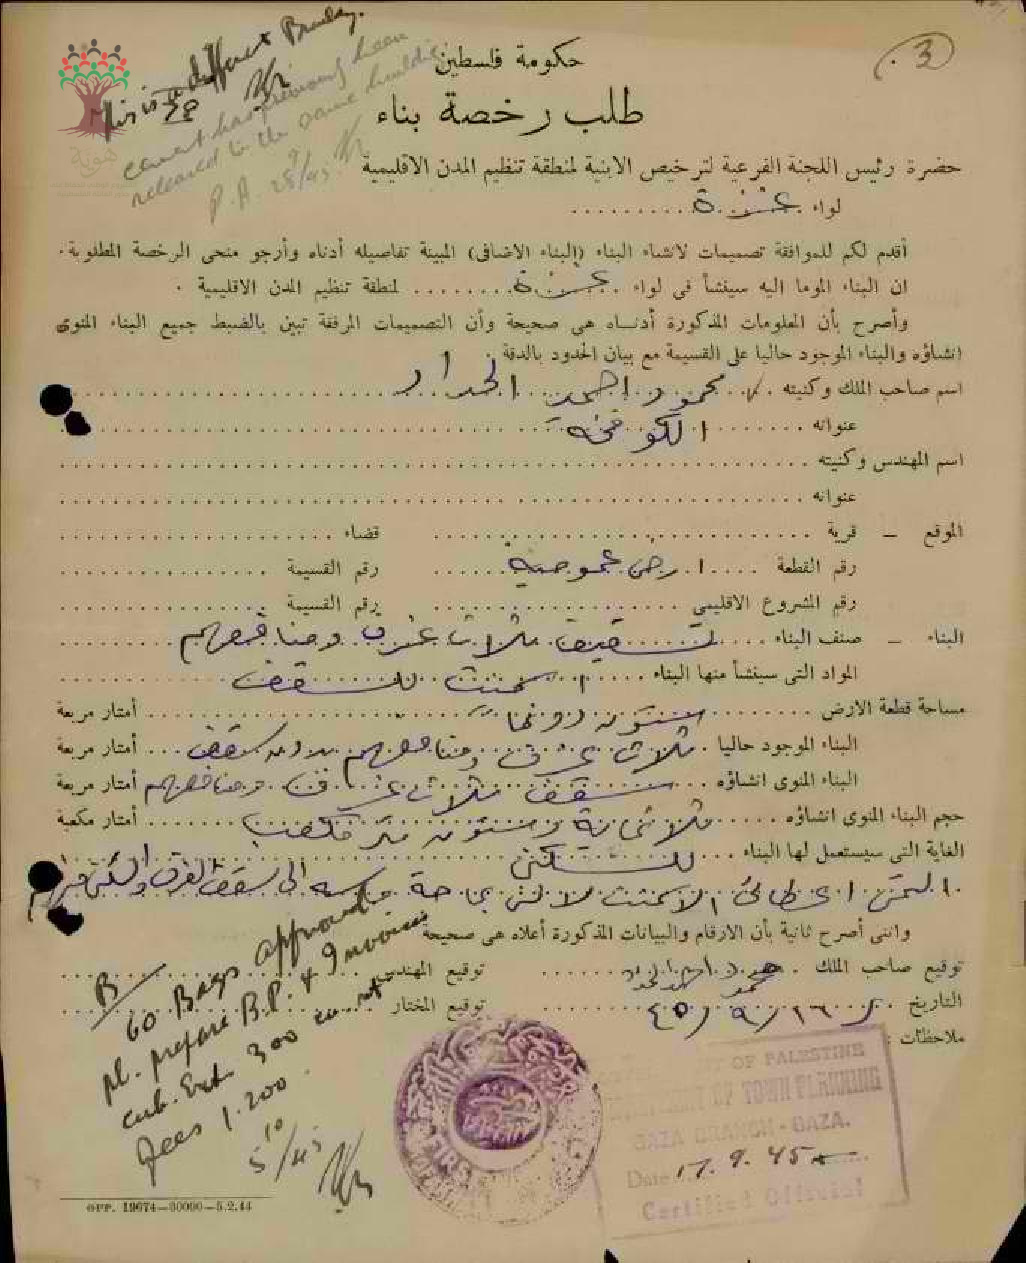 3
This is a different Building.
cement has previously been
released to the same building
P.A. 28/9/45
حكومة فلسطين
طلب رخصة بناء
حضرة رئيس اللجنة الفرعية لترخيص الابنية لمنطقة تنظيم المدن الاقليمية
لواء غزة
أقدم لكم للموافقة تصميمات لانشاء البناء (البناء الاضافى) المبينة تفاصيله أدناه وأرجو منحى الرخصة المطلوبة .
ان البناء الموما اليه سينشأ فى لواء غزة لمنطقة تنظيم المدن الاقليمية .
وأصرح بأن المعلومات المذكورة أدناه هى صحيحة وأن التصميمات المرفقة تبين بالضبط جميع البناء المنوى
انشاؤه والبناء الموجود حاليا على القسيمة مع بيان الحدود بالدقة .
اسم صاحب الملك وكنيته محمود احمد
عنوانه الكوفخه
اسم المهندس وكنيته
عنوانه
الموقع — قرية قضاء
رقم القطعة ارض عمومية رقم القسيمة
رقم المشروع الاقليمي رقم القسيمة
البناء — صنف البناء تسقيف ثلاث غرف ومنافعهم
المواد التى سينشأ منها البناء اسمنت للسقف
مساحة قطعة الارض ستون دونما أمتار مربعة
البناء الموجود حاليا ثلاث غرف ومنافعهم بدون سقف أمتار مربعة
البناء المنوى انشاؤه سقف ثلاث غرف ومنافعهم أمتار مربعة
حجم البناء المنوى انشاؤه ثلاثماية وستون متر مكعب أمتار مكعبة
الغاية التى سيستعمل لها البناء للسكن
التمس اعطائي الاسمنت لانني بحاجة ماسه الى سقف الغرف والسكن فيهم
وانى أصرح ثانية بأن الارقام والبيانات المذكورة أعلاه هى صحيحة
توقيع صاحب الملك محمود احمد توقيع المهندس
التاريخ ١٦/٩/٤٥ توقيع المختار
ملاحظات :
B
60 Bags approved
pl. prepare B.P. & Invoice
cub. Ext. 300 cu. mt
Fees 1.200
5/10/45
GOVERNMENT OF PALESTINE
DEPARTMENT OF TOWN PLANNING
GAZA BRANCH - GAZA.
Date 17.9.45
Certified Official
GPP. 19674—30000—5.2.44